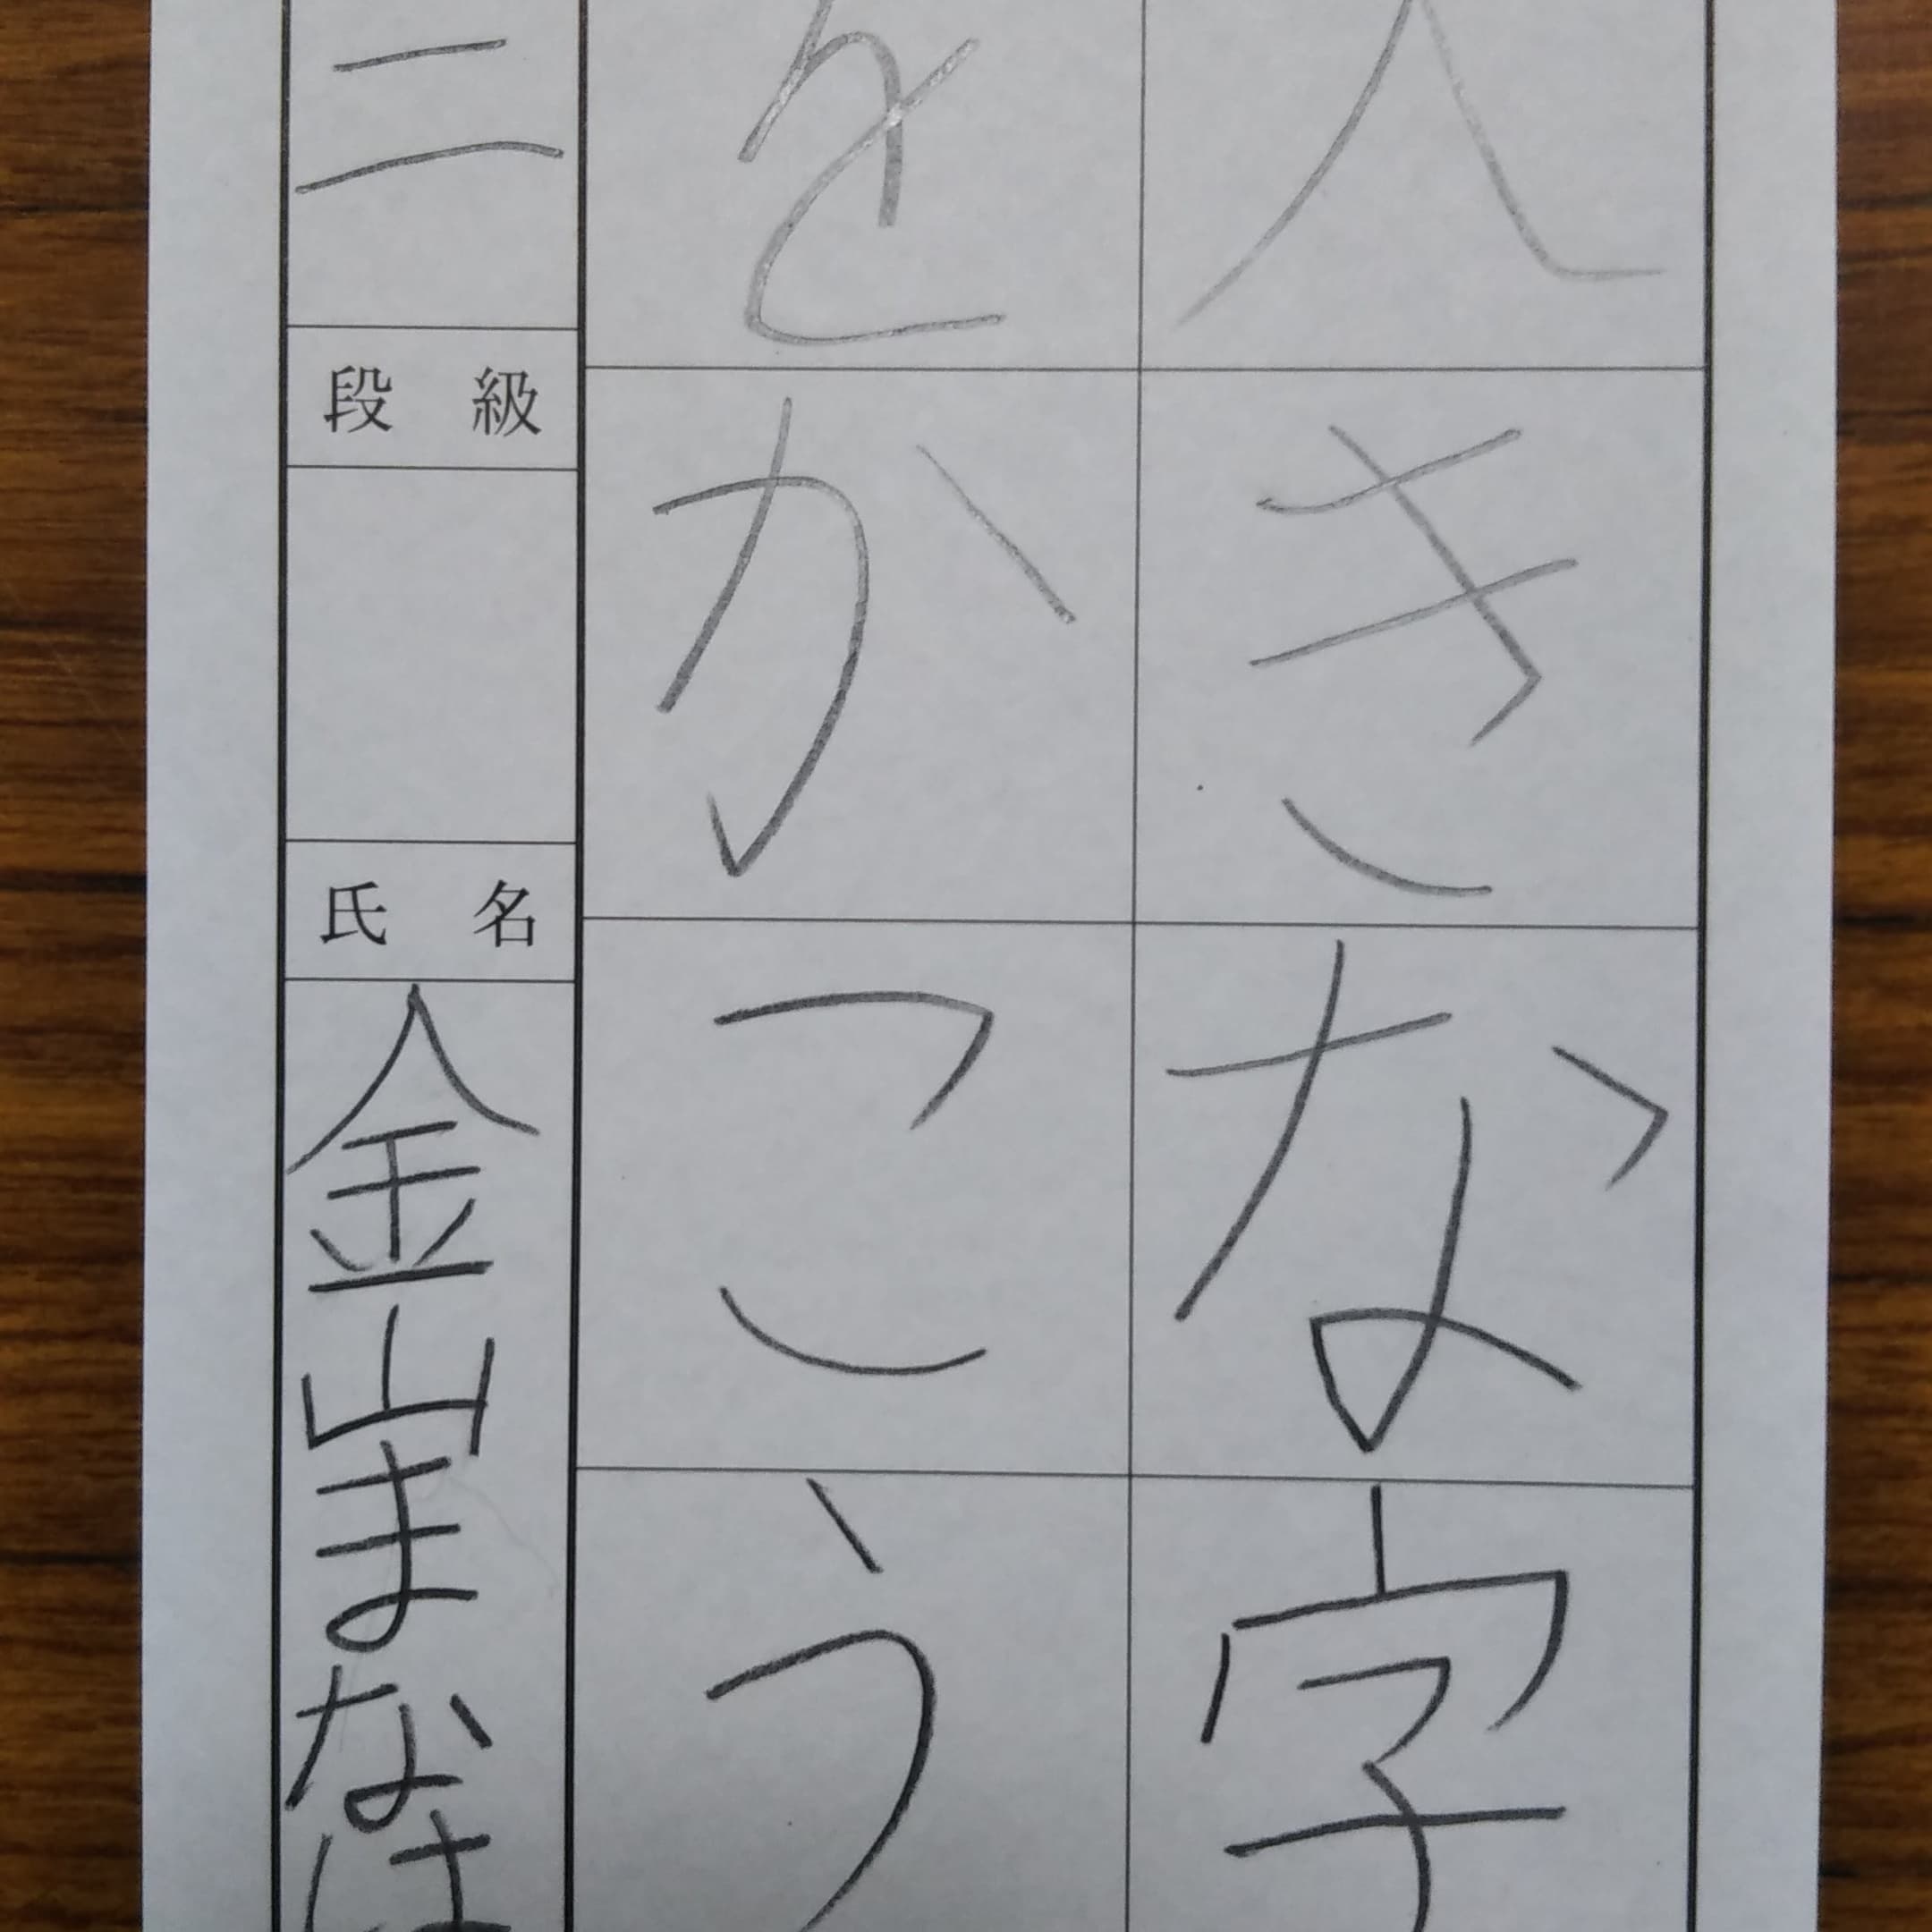 大きな字
をかこう
二
段級
氏名
金山まな